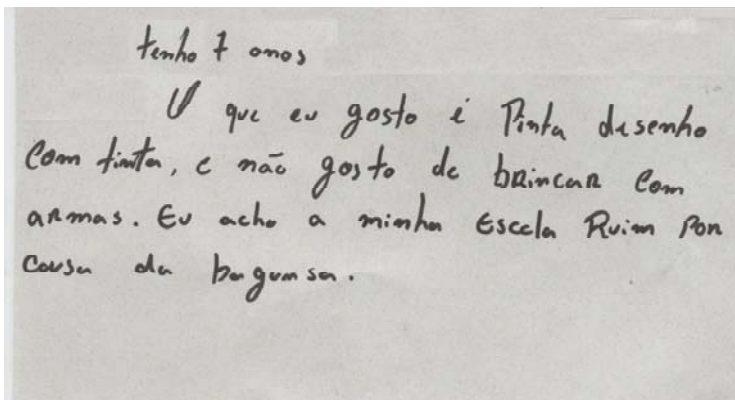 tenho 7 anos
O que eu gosto é Pinta desenho
com tinta, e não gosto de brincar com
armas. Eu acho a minha Escola Ruim Por
causa da bagunsa.